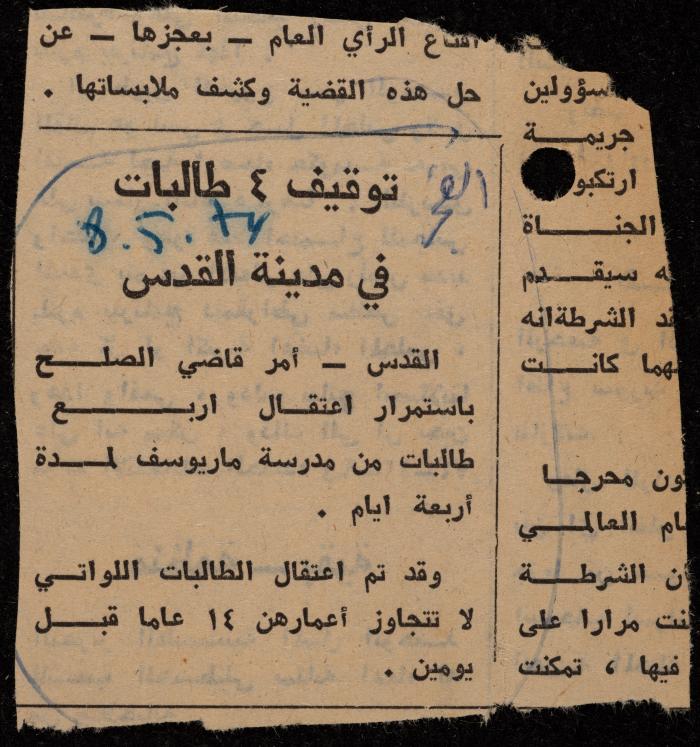 اقناع الرأي العام — بعجزها — عن
حل هذه القضية وكشف ملابساتها .
توقيف ٤ طالبات
في مدينة القدس
8.5.74
القدس — أمر قاضي الصلح
باستمرار اعتقال اربع
طالبات من مدرسة ماريوسف لمدة
أربعة ايام .
وقد تم اعتقال الطالبات اللواتي
لا تتجاوز أعمارهن ١٤ عاما قبل
يومين .
سؤولين
جريمة
ارتكبو
الجناة
ه سيقدم
الشرطة انه
هما كانت
ون محرجا
ام العالمي
ن الشرطة
نت مرارا على
فيها ، تمكنت